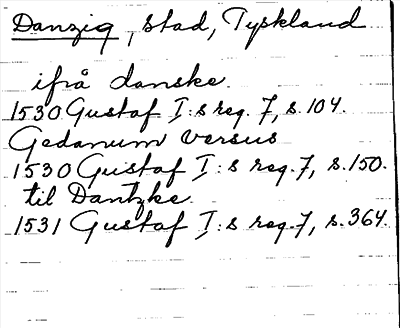 Danzig, stad, Tyskland
ifrå danske.
1530 Gustaf I:s reg. 7, s. 104.
Gedanum versus
1530 Gustaf I:s reg. 7, s. 150.
til Dantzke.
1531 Gustaf I:s reg. 7, s. 364.